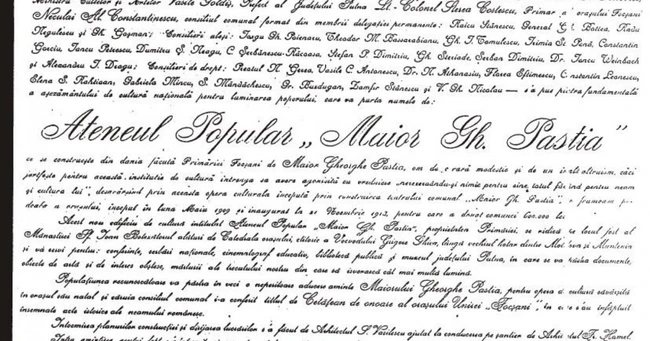 Ministru Cultelor și Artelor Vasile Goldiș, Prefect al Județului Putna Lt. Colonel Sava Costescu, Primar a orașului Focșani
Neculai Al Constantinescu, consiliul comunal format din membrii delegației permanente: Raicu Stănescu, General Gh. Botică, Radu
Negulescu și Gh. Goșman; Consilieri aleși: Iorgu Gh. Poienaru, Theodor M. Bassarabianu, Gh. I. Tomulescu, Irimia St. Pană, Constantin
Gociu, Iancu Petrescu, Dumitru G. Neagu, C. Șerbănescu-Răcoasa, Stefan P. Dimitriu, Gh. Steriade, Șerban Dimitriu, Dr. Iancu Weinbach
și Alexandru I. Dragu; Consilieri de drept: Preotul N. Gerea, Vasile C. Antonescu, Dr. N. Athanasiu, Florea Eftimescu, Constantin Leonescu,
Elena S. Rahtivan, Gabriela Mircu, S. Mândăchescu, Gr. Buzdugan, Zamfir Stănescu și V. Gh. Nicolau — s'a pus piatra fundamentală
a așezământului de cultură națională pentru luminarea poporului, care va purta numele de:
Ateneul Popular „Maior Gh. Pastia”
ce se construește din dania făcută Primăriei Focșani de Maior Gheorghe Pastia, om de o rară modestie și de un altruism, căci
jertfește pentru această instituție de cultură întreaga sa avere agonisită cu vrednicie nerezervându-și nimic pentru sine, totul fiind pentru neam
și cultura lui", desăvârșind prin aceasta opera culturală începută prin construirea teatrului comunal „Maior Gh. Pastia",
a orașului, început în luna Maiu 1909 și inaugurat la 21 Noembrie 1913, pentru care a donat comunei 600.000 lei
Acest nou edificiu de cultură intitulat Ateneul Popular „Maior Gh. Pastia", proprietatea Primăriei, se ridică pe locul fost al
Mănăstirei Sf. Ioan Botezătorul alături de Catedrala orașului, ctitorie a Voevodului Grigore Ghica, lângă vechiul hotar dintre Moldova și Muntenia
și va servi pentru: conferințe, serbări naționale, cinematograf educativ, bibliotecă publică și muzeul județului Putna, în care se va păstra documente,
obiecte de artă și de interes obștesc, mărturii ale trecutului nostru din care să isvorască cât mai multa lumină.
Populațiunea recunoscătoare va păstra în veci o nepieritoare aducere aminte Maiorului Gheorghe Pastia, pentru opera culturală săvârșită
în orașul său natal și căruia consiliul comunal i-a conferit titlul de Cetățean de onoare al orașului Unirei „Focșani", în care s'au înfăptuit
însemnate acte istorice ale neamului românesc.
Întocmirea planurilor construcției și dirijarea lucrărilor s'a făcut de Arhitectul S. Vasilescu ajutat la conducerea pe șantier de Arhitectul Fr. Hamel.